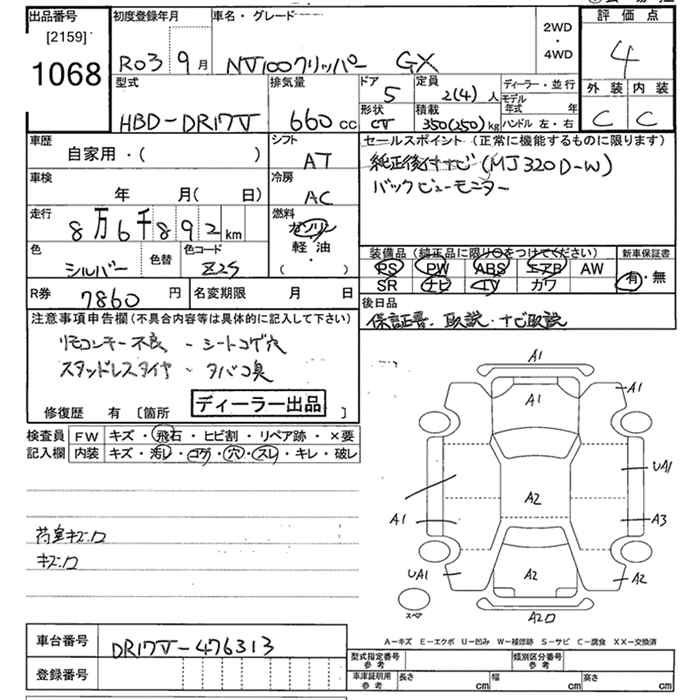 出品番号 初度登録年月 車名・グレード 評価点
[2159]
1068
R03 9月 NV100クリッパー GX 2WD ・ 4WD 4
型式 排気量 ドア 定員 ディーラー・並行 外装 内装
5 2(4)人 モデル年式 年
形状 積載 ハンドル 左・右
HBD-DR17V 660cc CV 350(250)kg C C
車歴 シフト セールスポイント(正常に機能するものに限ります)
自家用・( ) AT 純正後付ナビ(MJ320D-W)
車検 冷房 バックビューモニター
年 月(日) AC
走行 燃料
8万6千892km ガソリン
軽油
・( )
色 色替 色コード 装備品(純正品に限り○をつけてください) 新車保証書
シルバー Z2S PS PW ABS エアB AW 有・無
SR ナビ TV カワ
R券 7860円 名変期限 月 日 後日品
注意事項申告欄(不具合内容等は具体的に記入して下さい) 保証書、取説、ナビ取説
リモコンキー不良 - シートコゲ穴
スタッドレスタイヤ - タバコ臭
修復歴 有 [箇所 ディーラー出品 ]
検査員 FW キズ・飛石・ヒビ割・リペア跡・×要
記入欄 内装 キズ・汚レ・コゲ・穴・スレ・キレ・破レ
荷室キズ.ロ
キズ.ロ
A1
A1 A1
UA1
A2
A1 A3
UA1 A2 A2
スペア
A20
A-キズ E-エクボ U-凹み W-補修跡 S-サビ C-腐食 XX-交換済
車台番号 DR17V-476313
型式指定番号 参考 類別区分番号 参考
登録番号 車庫証明用 参考 長さ cm 幅 cm 高さ cm